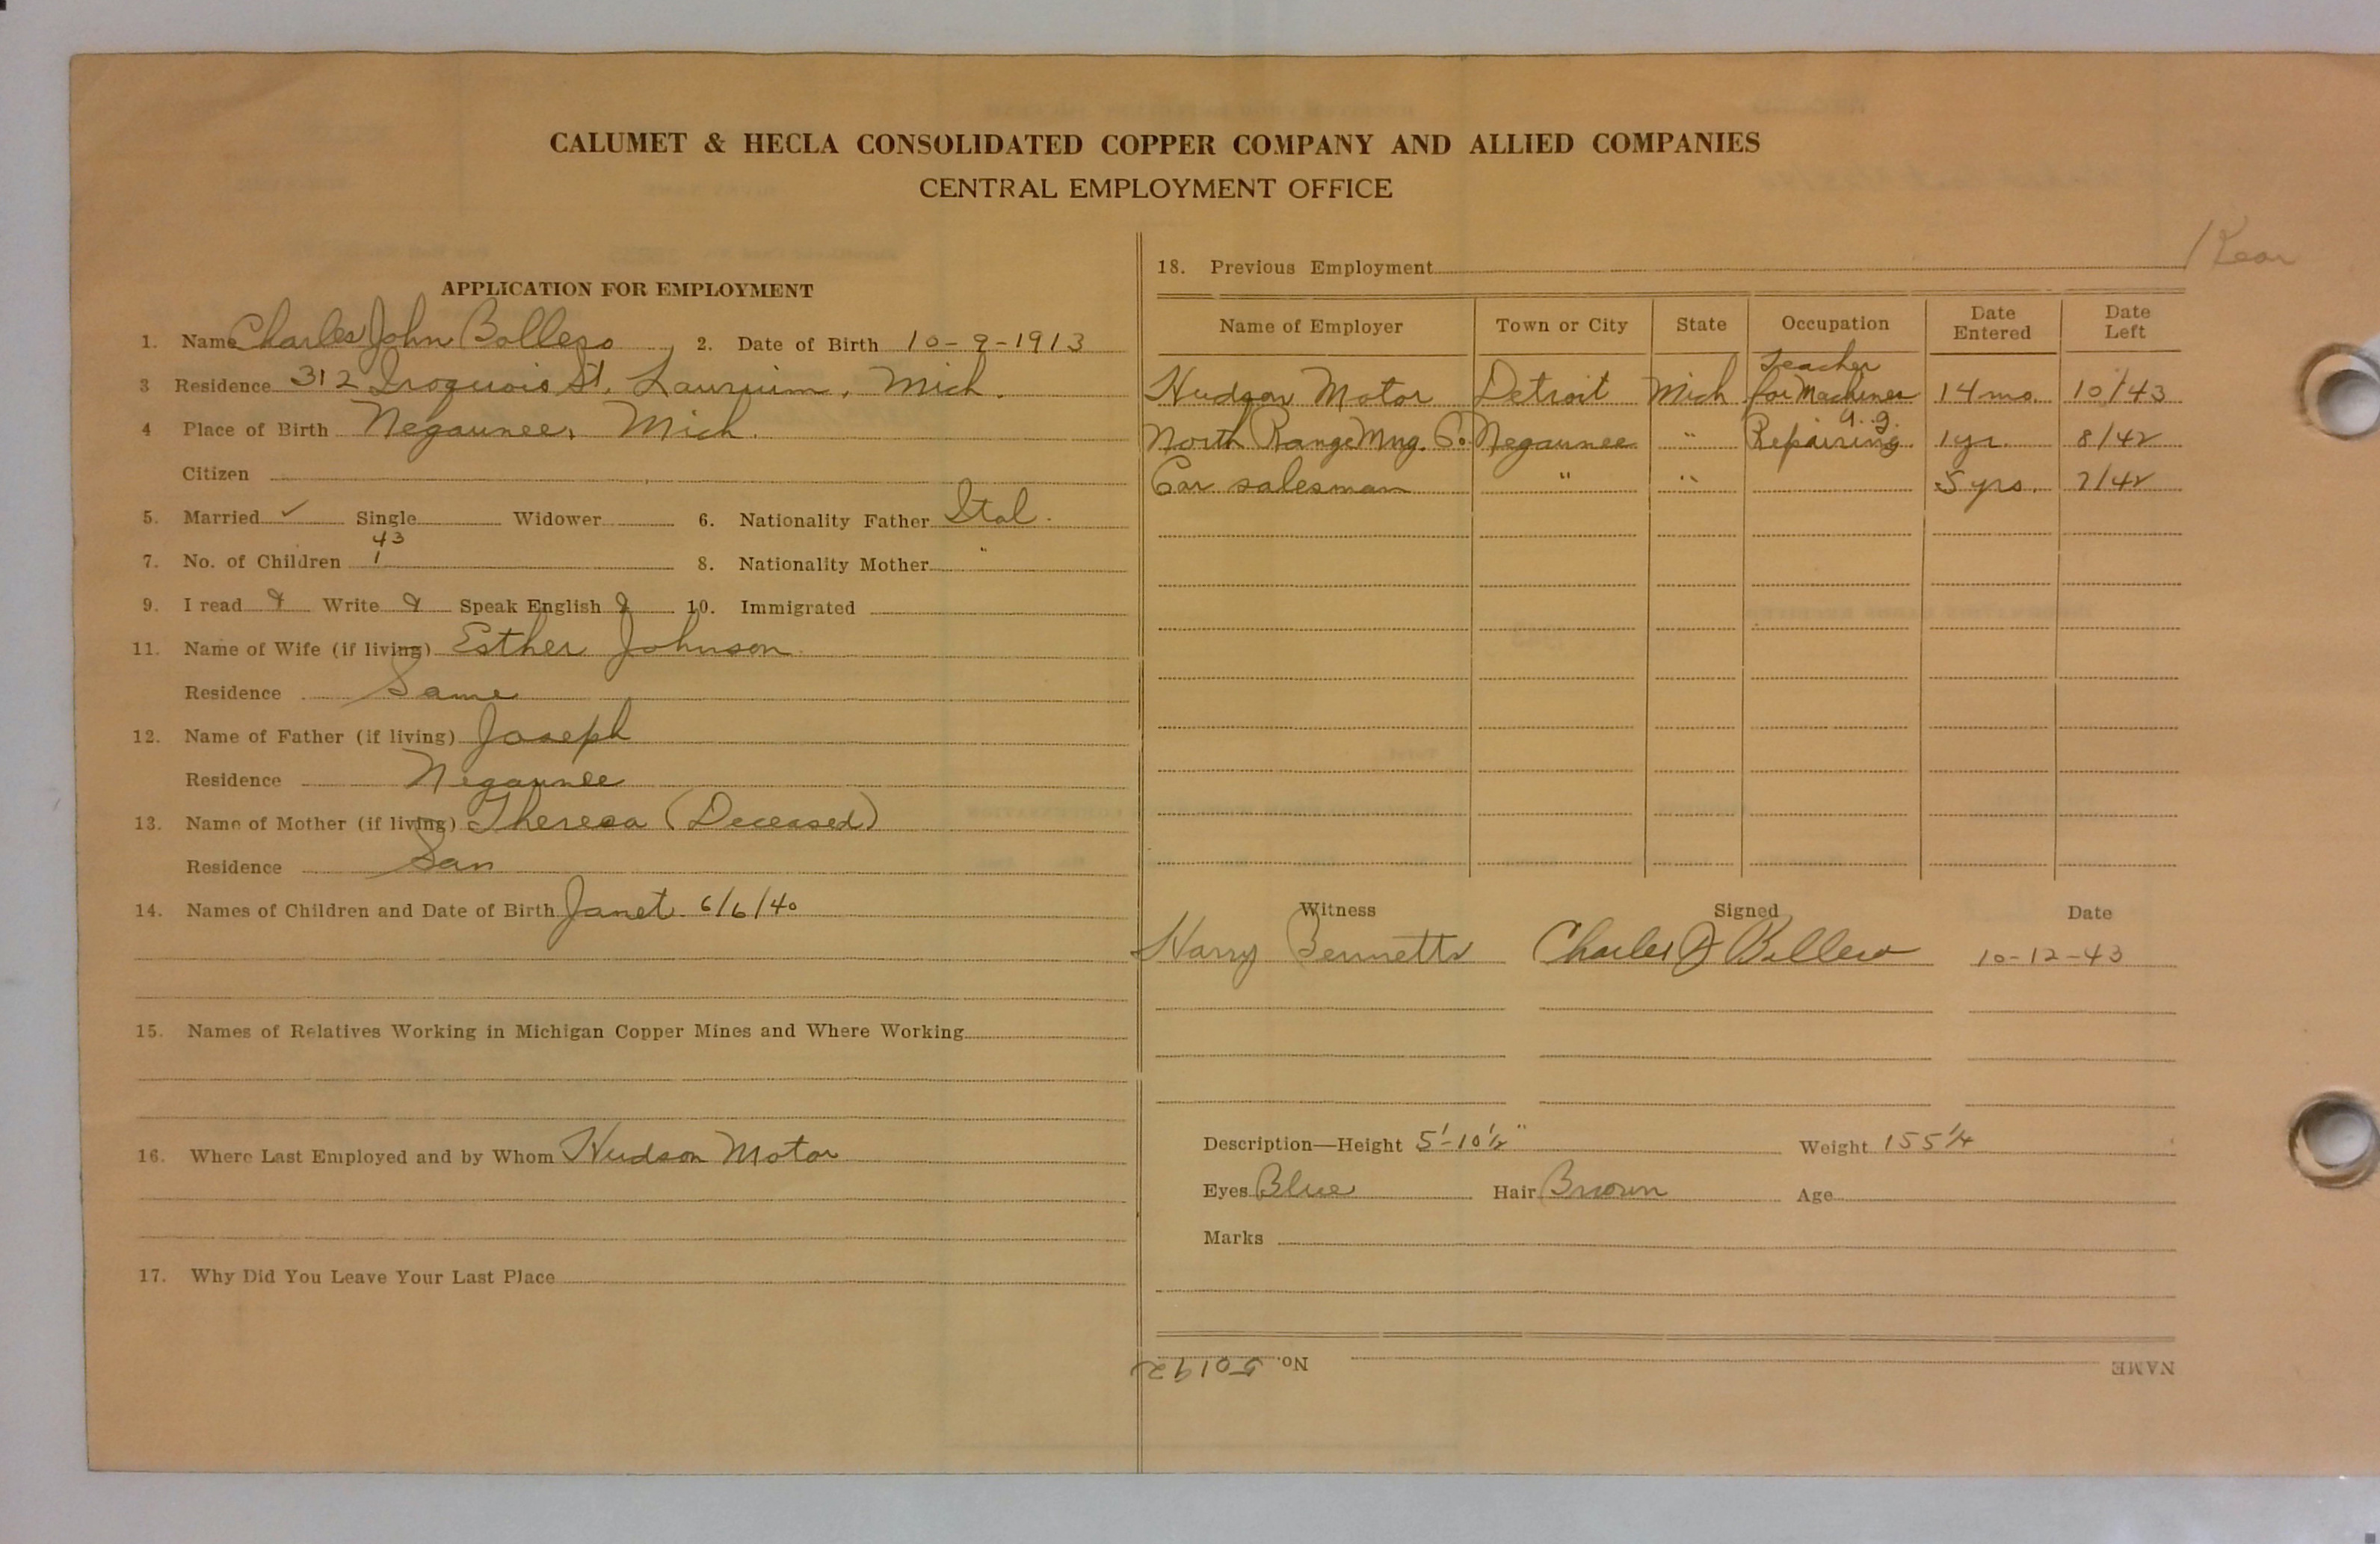 CALUMET & HECLA CONSOLIDATED COPPER COMPANY AND ALLIED COMPANIES
CENTRAL EMPLOYMENT OFFICE
APPLICATION FOR EMPLOYMENT
1. Name Charles John Bollero 2. Date of Birth 10-9-1913
3 Residence 312 Iroquois St. Laurium, Mich.
4 Place of Birth Negaunee, Mich.
Citizen
5. Married ✓ Single Widower 6. Nationality Father Ital.
43
7. No. of Children 1 8. Nationality Mother "
9. I read Write Speak English 10. Immigrated
11. Name of Wife (if living) Esther Johnson
Residence Same
12. Name of Father (if living) Joseph
Residence Negaunee
13. Name of Mother (if living) Theresa (Deceased)
Residence San
14. Names of Children and Date of Birth Janet 6/6/40
15. Names of Relatives Working in Michigan Copper Mines and Where Working
16. Where Last Employed and by Whom Hudson Motor
17. Why Did You Leave Your Last Place
18. Previous Employment
Name of Employer Town or City State Occupation Date Entered Date Left
Teacher
Hudson Motor Detroit Mich for Machines 14 mo. 10/43
U.g.
North Range Mng. Co. Negaunee " Repairing 1 yr. 8/42
Car salesman " " 5 yrs. 7/42
Witness Signed Date
Harry Bennetts Charles J Bollero 10-12-43
Description—Height 5'-10½" Weight 155¼
Eyes Blue Hair Brown Age
Marks
NAME No. 50192